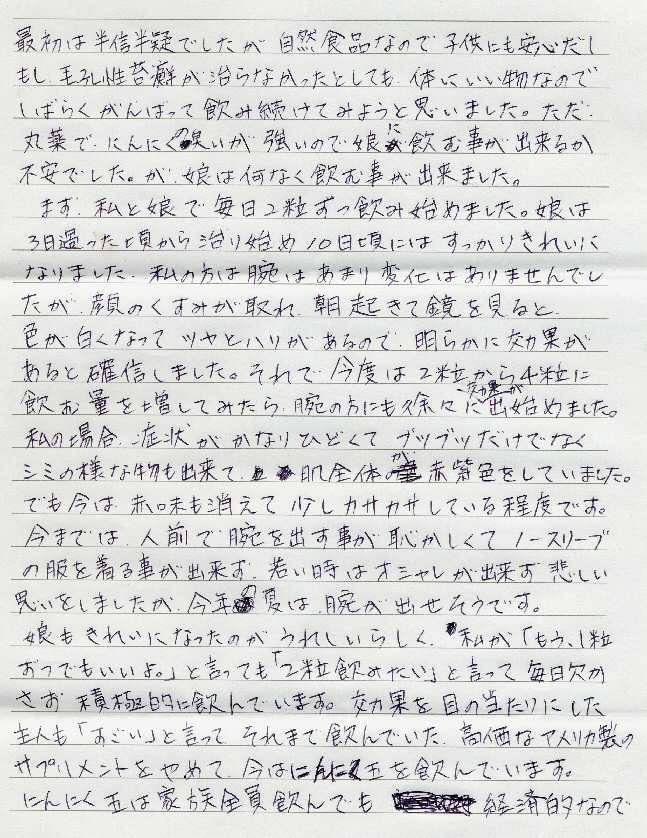 最初は半信半疑でしたが 自然食品なので 子供にも安心だし
もし、毛孔性苔癬が治らなかったとしても、体にいい物なので
しばらくがんばって飲み続けてみようと思いました。ただ、
丸薬で、にんにくの臭いが強いので娘に飲む事が出来るか
不安でした。が、娘は何なく飲む事が出来ました。
まず、私と娘で毎日2粒ずつ飲み始めました。娘は
3日過った頃から治り始め10日頃にはすっかりきれいに
なりました。私の方は腕はあまり変化はありませんでし
たが、顔のくすみが取れ、朝起きて鏡を見ると、
色が白くなってツヤとハリがあるので、明らかに効果が
あると確信しました。それで、今度は2粒から4粒に
飲む量を増してみたら、腕の方にも徐々に効果が出始めました。
私の場合、症状がかなりひどくてブツブツだけでなく
シミの様な物も出来て、肌全体が赤紫色をしていました。
でも今は、赤味も消えて少しカサカサしている程度です。
今までは、人前で腕を出す事が恥かしくてノースリーブ
の服を着る事が出来ず、若い時はオシャレが出来ず悲しい
思いをしましたが、今年の夏は、腕が出せそうです。
娘もきれいになったのがうれしいらしく、私が「もう、1粒
ずつでもいいよ。」と言っても「2粒飲みたい」と言って毎日欠か
さず積極的に飲んでいます。効果を目の当たりにした
主人も「すごい」と言って、それまで飲んでいた、高価なアメリカ製の
サプリメントをやめて、今はにんにく玉を飲んでいます。
にんにく玉は家族全員飲んでも 経済的なので